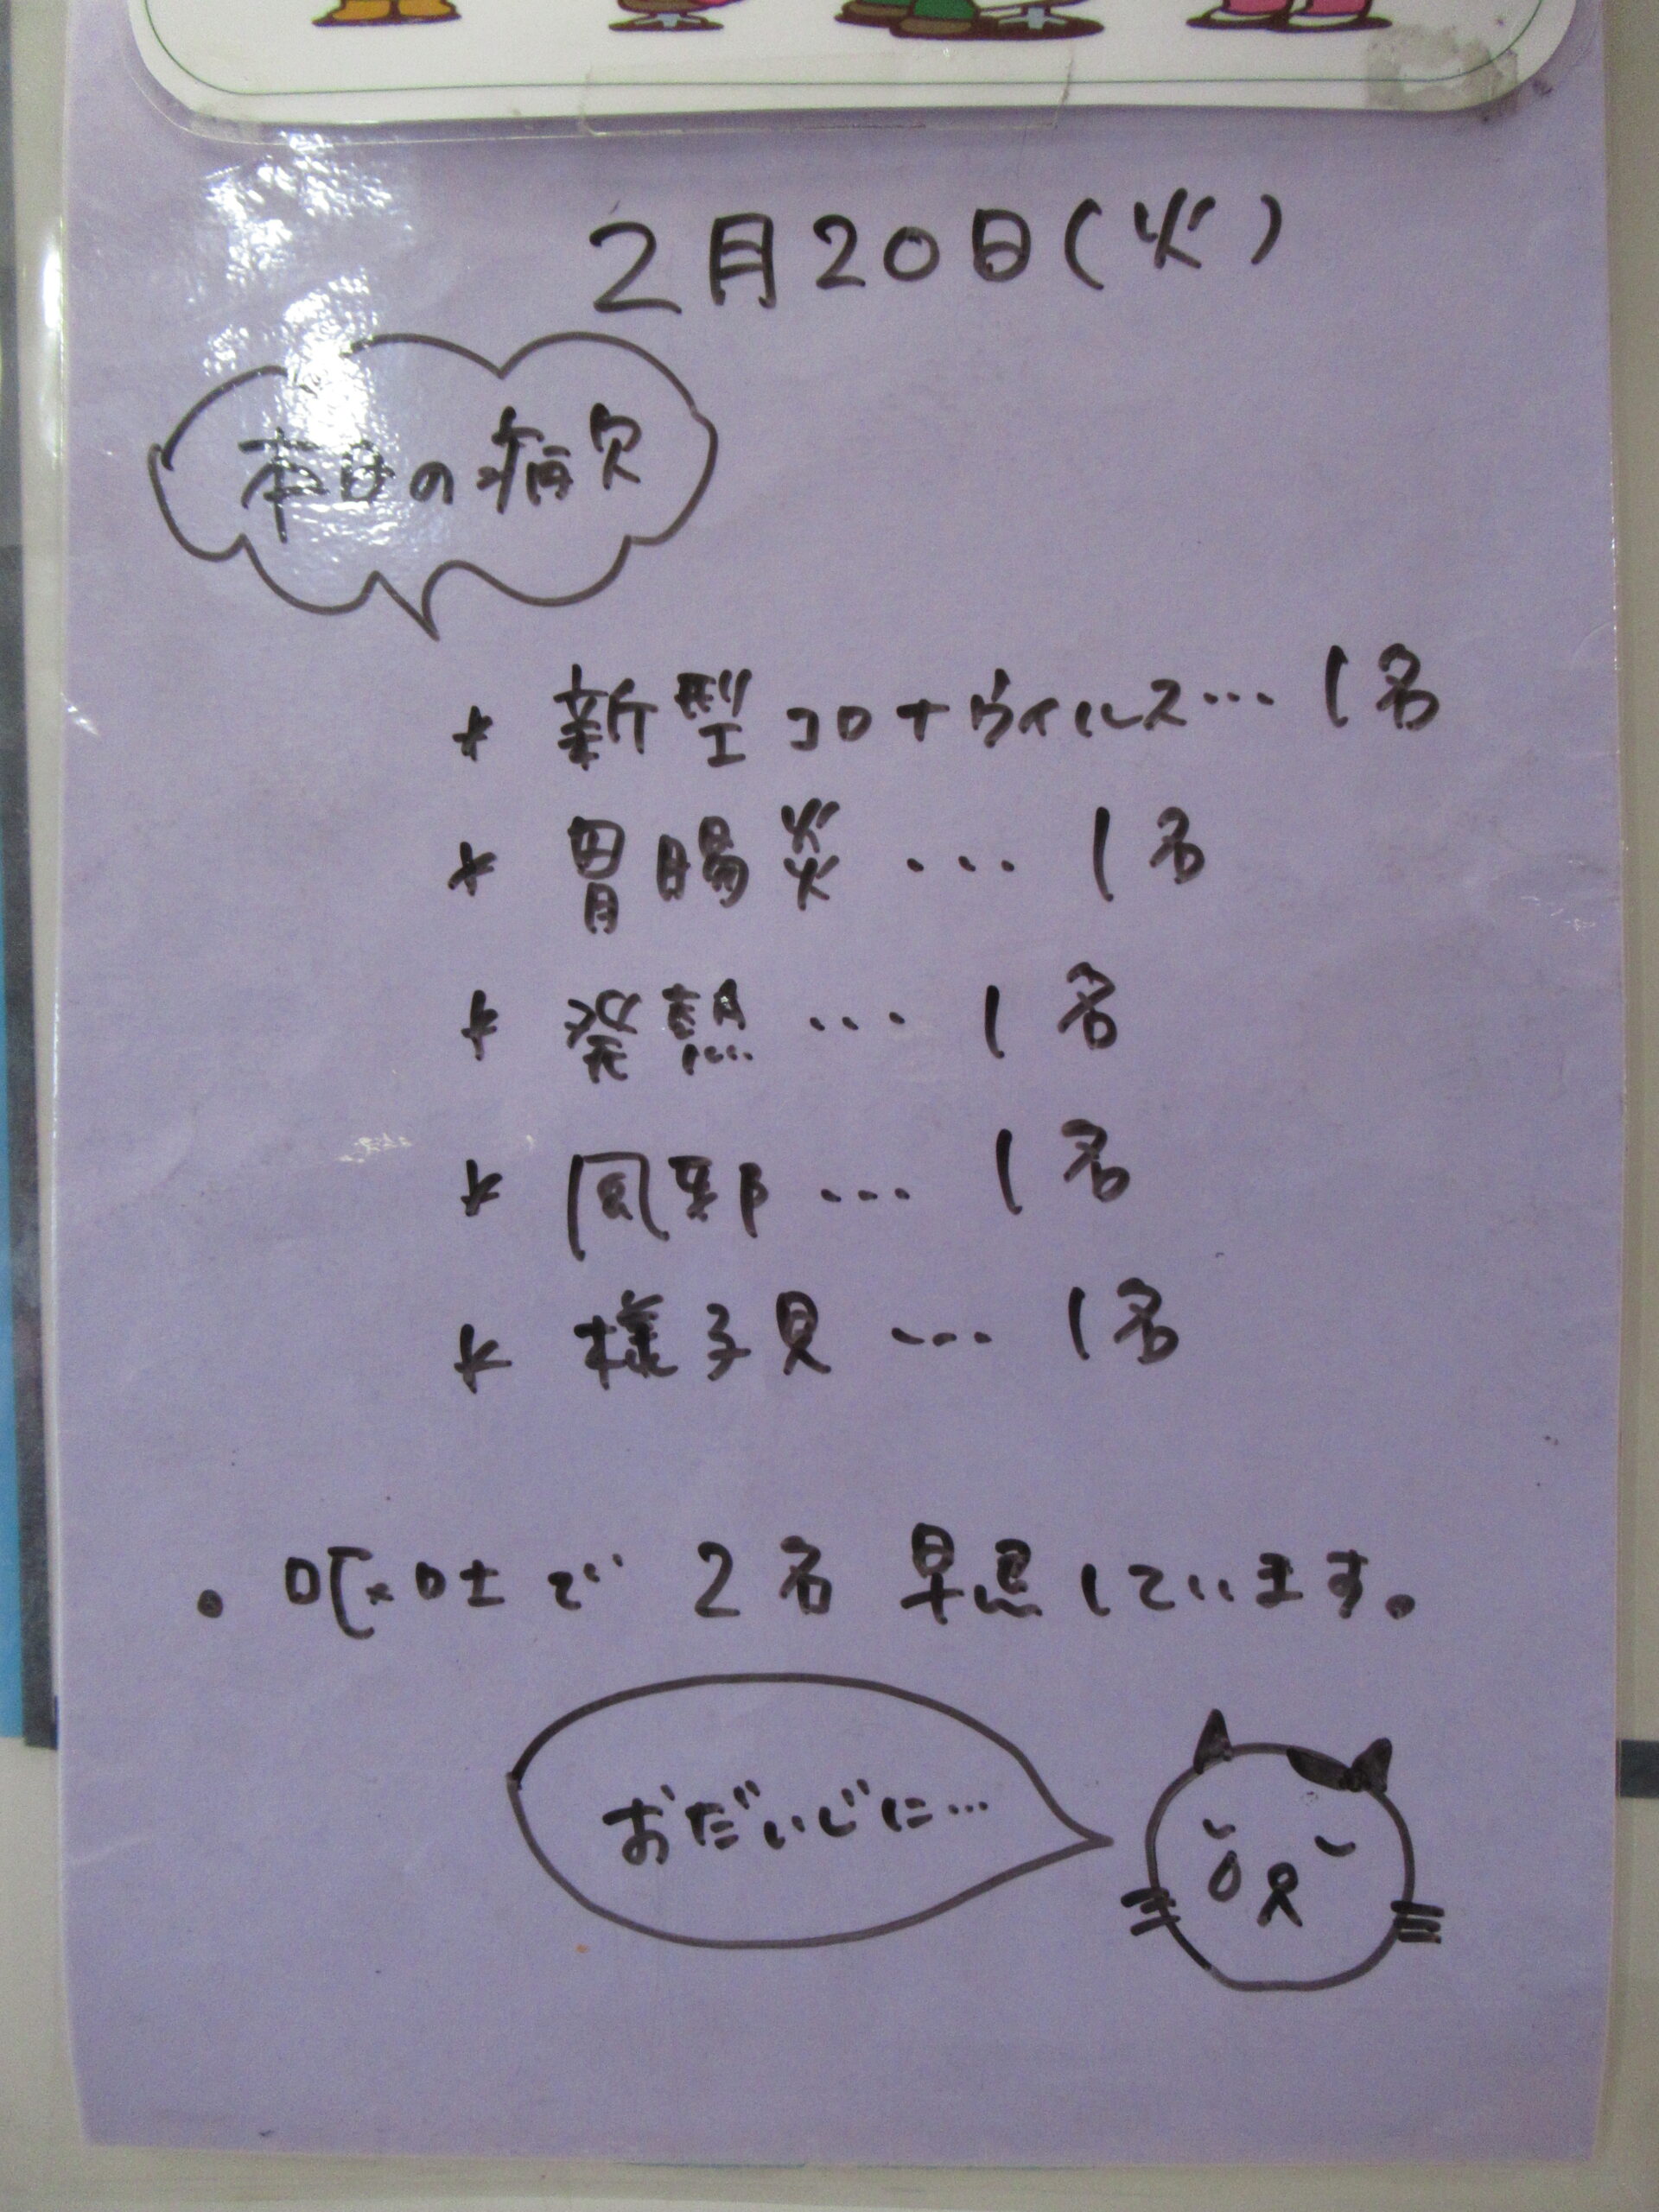 2月20日(火)
本日の病欠
* 新型コロナウィルス… 1名
* 胃腸炎 … 1名
* 発熱 … 1名
* 風邪 … 1名
* 様子見 … 1名
・嘔吐で 2名 早退しています。
おだいじに…